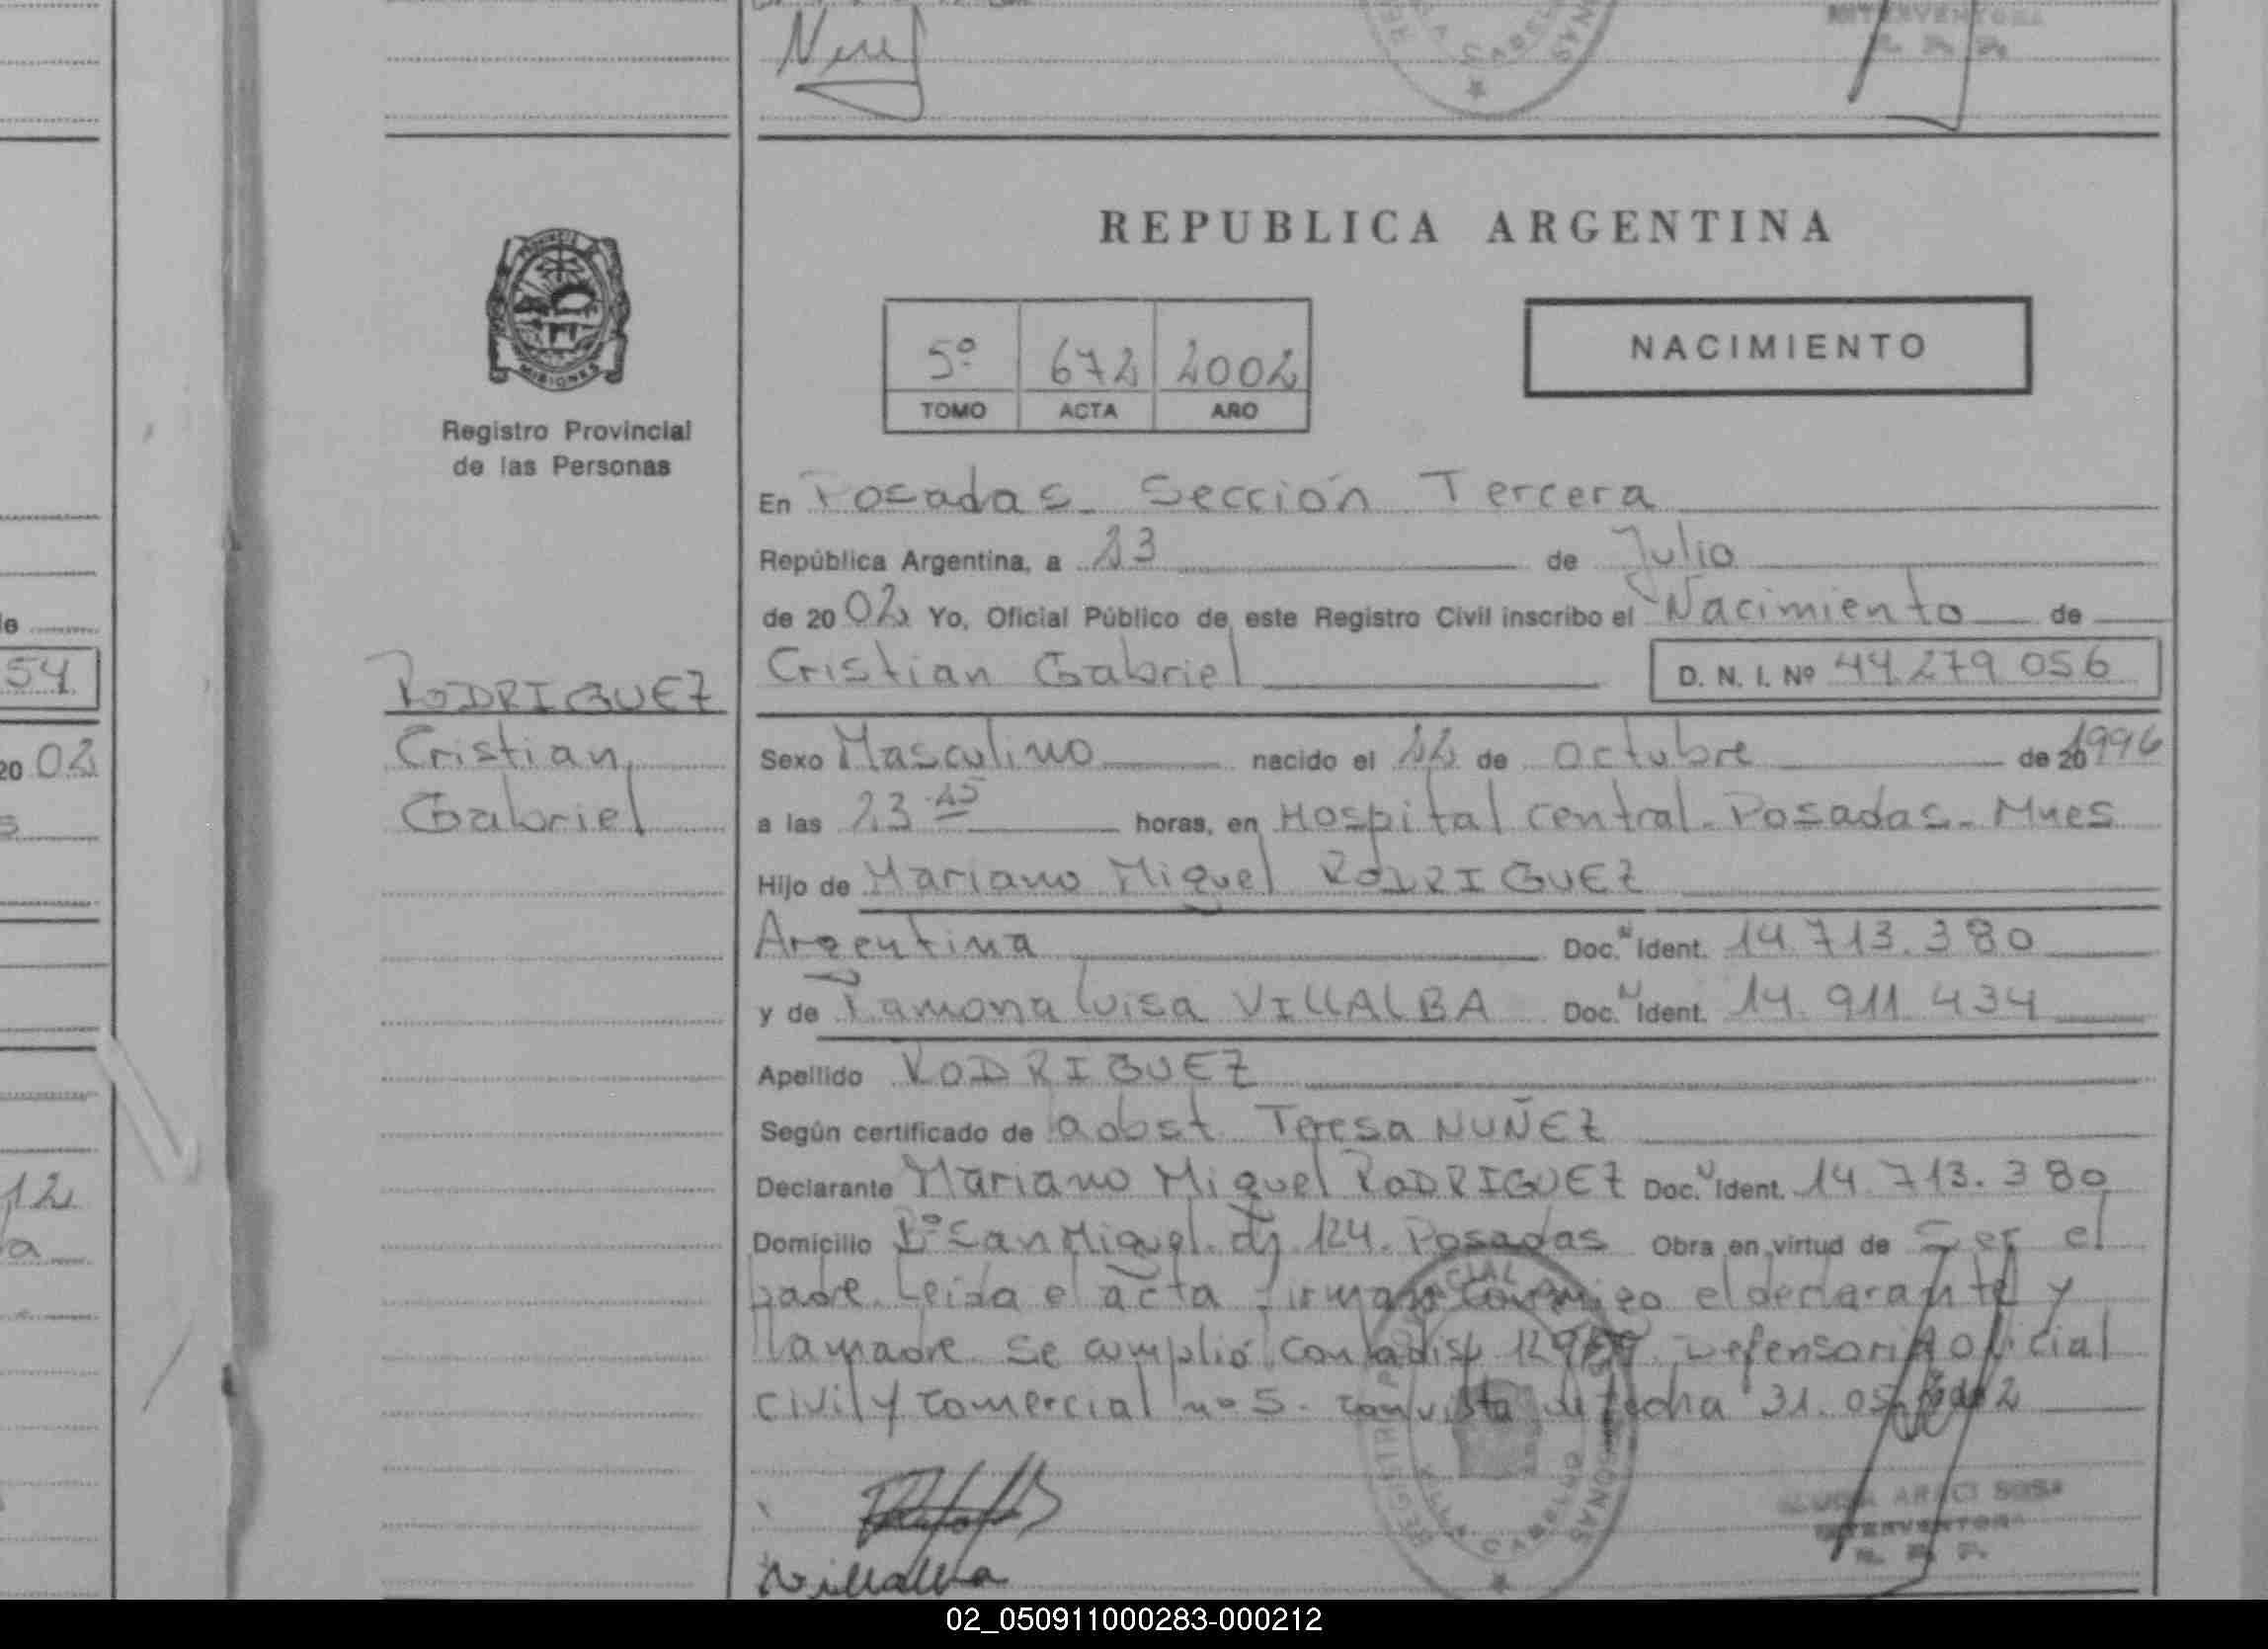 INTERVENTORA
R. P. P.
REPUBLICA ARGENTINA
5º 672 2002
TOMO ACTA AÑO
NACIMIENTO
MISIONES
Registro Provincial
de las Personas
En Posadas - Sección Tercera
República Argentina, a 23 de Julio
de 2002 Yo, Oficial Público de este Registro Civil inscribo el Nacimiento de
54
RODRIGUEZ
Cristian Gabriel D. N. I. Nº 44.279.056
20 02
Cristian
Gabriel
Sexo Masculino nacido el 22 de octubre de 20 1996
a las 23.45 horas, en Hospital Central - Posadas - Mnes
Hijo de Mariano Miguel RODRIGUEZ
Argentina Doc. Ident. 14.713.380
y de Ramona Luisa VILLALBA Doc. Ident. 14.911.434
Apellido RODRIGUEZ
Según certificado de la obst Teresa NUÑEZ
Declarante Mariano Miguel RODRIGUEZ Doc. Ident. 14.713.380
12
Domicilio Bº San Miguel. 124. Posadas Obra en virtud de Ser el
padre. Leida el acta firman conmigo el declarante y
la madre. Se cumplió con la disp Defensoria oficial
civil y comercial nº 5. con vista de fecha 31.05.2002
REGISTRO PROVINCIAL DE LAS PERSONAS
VILLA CABELLO
ARACI SOSA
INTERVENTORA
R. P. P.
Villalba
02_050911000283-000212